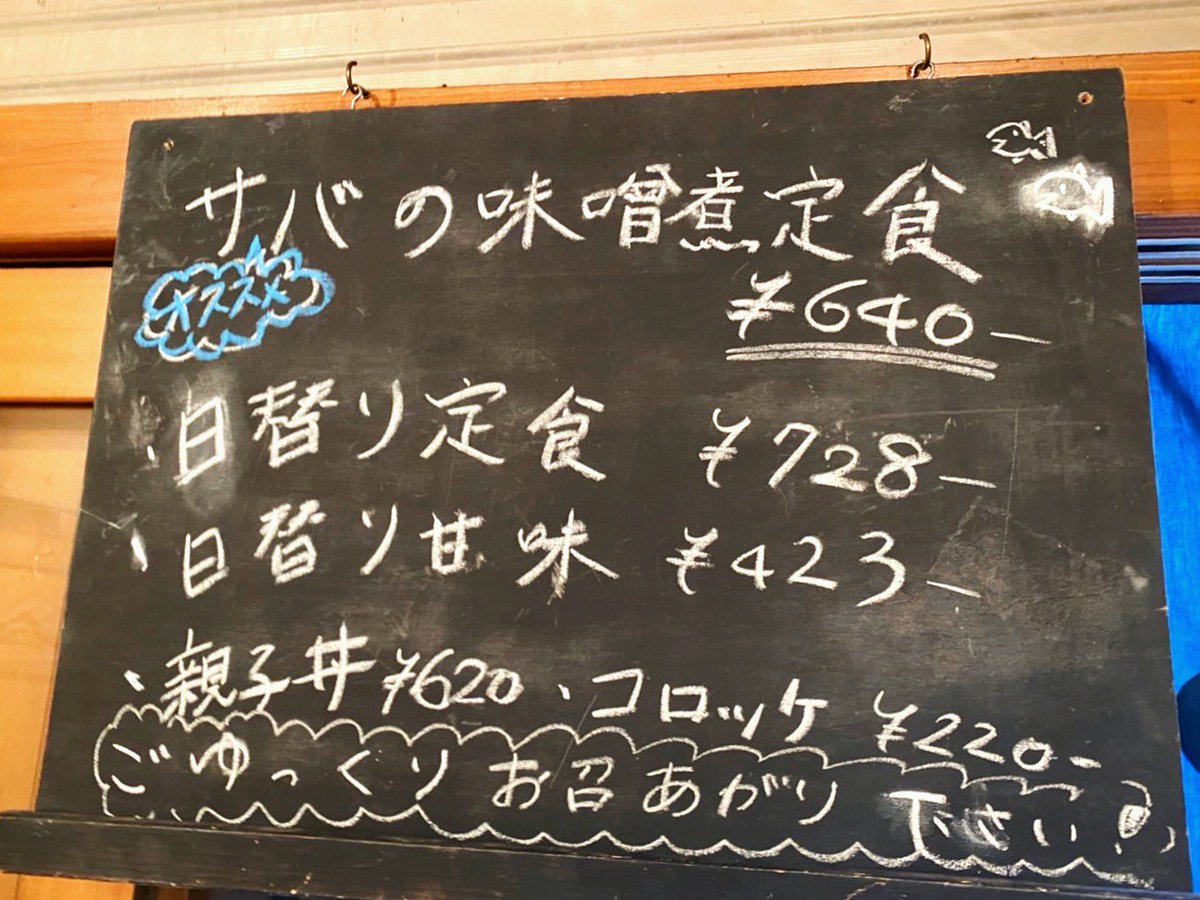 サバの味噌煮定食
オススメ
¥640-
・日替り定食 ¥728-
・日替り甘味 ¥423-
・親子丼 ¥620 ・コロッケ ¥220-
ごゆっくりお召あがり下さい